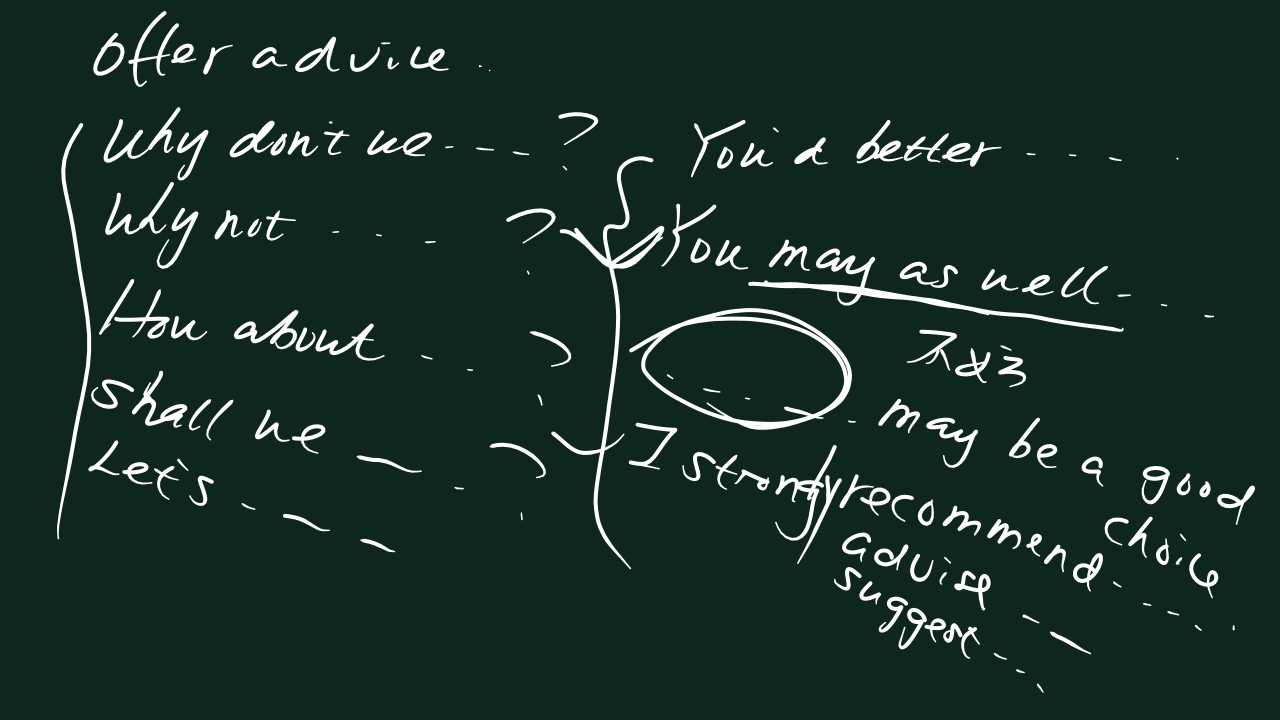 Offer advice ..
Why don't we - - - - ?
Why not - - - - ?
How about - - - ?
Shall we — - ?
Let's - — —
You'd better - - - -
You may as well - - - -
不如
- - - - - may be a good choice
I strongly recommend - - - - -
advise - —
suggest - - - -